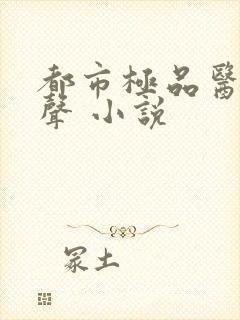 都市極品醫
聲 小說
冢土